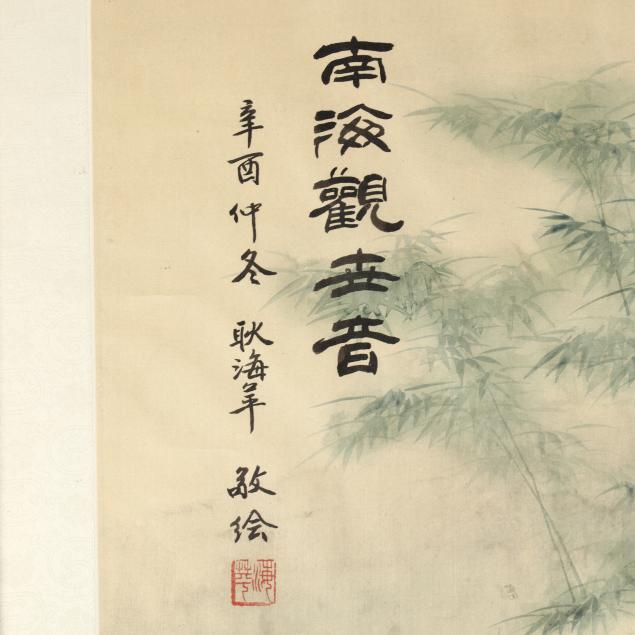 南海觀世音
辛酉仲冬 耿海苹 敬绘
海苹